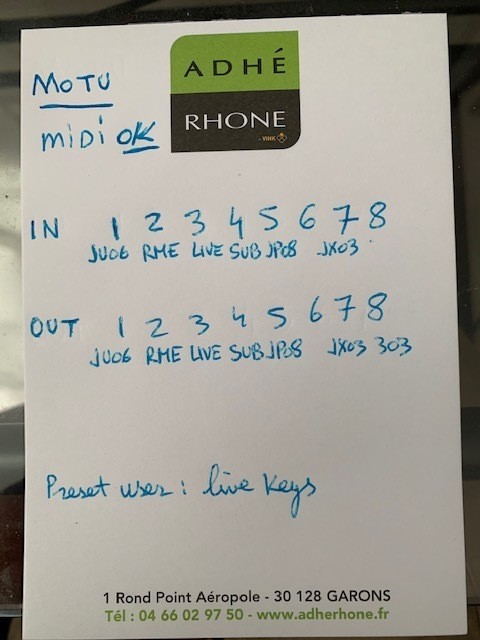 ADHÉ
RHONE
- VINK
MOTU
MIDI OK
IN 1 2 3 4 5 6 7 8
JU06 RME LIVE SUB JP08 JX03
OUT 1 2 3 4 5 6 7 8
JU06 RME LIVE SUB JP08 JX03 303
Preset user : live Keys
1 Rond Point Aéropole - 30 128 GARONS
Tél : 04 66 02 97 50 - www.adherhone.fr